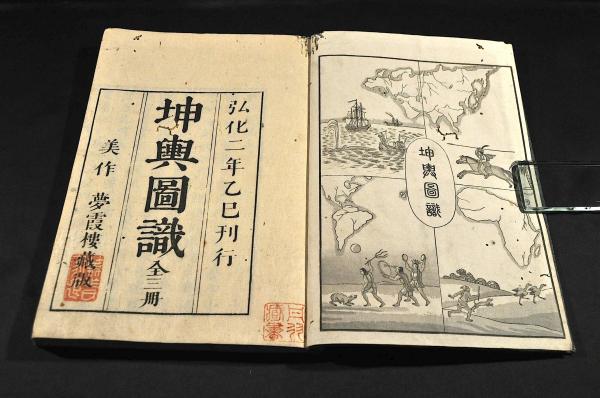 弘化二年乙巳刊行
坤輿圖識
全三册
美作 夢霞樓藏版
坤輿圖識